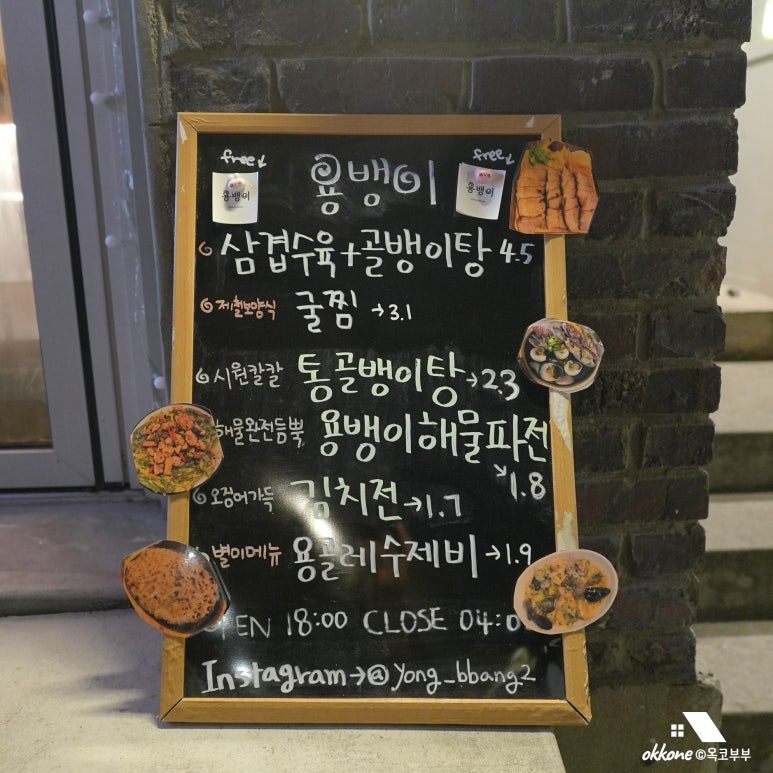 free free
용뱅이 용뱅이 용뱅이
삼겹수육+골뱅이탕 4.5
제철보양식 굴찜 →3.1
시원칼칼 통골뱅이탕→2.3
해물완전듬뿍 용뱅이해물파전
→1.8
오징어가득 김치전→1.7
별미메뉴 용골레수제비→1.9
OPEN 18:00 CLOSE
Instagram→@yong_bbang2
okkone ©옥코부부